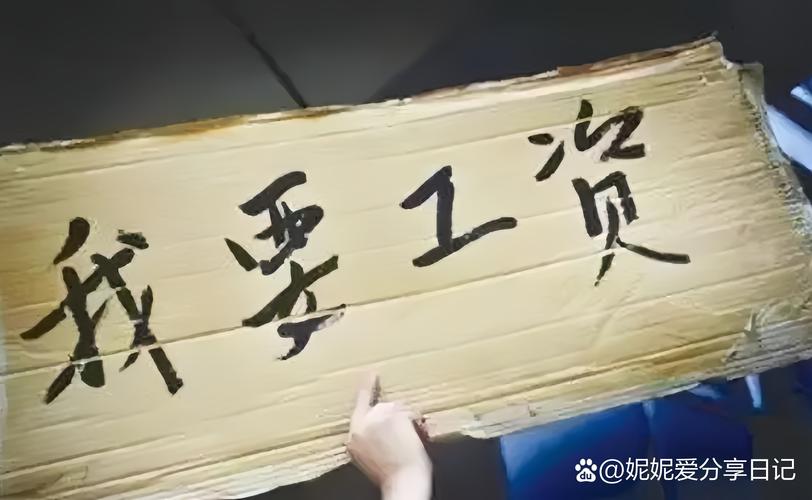 我要工资
@妮妮爱分享日记